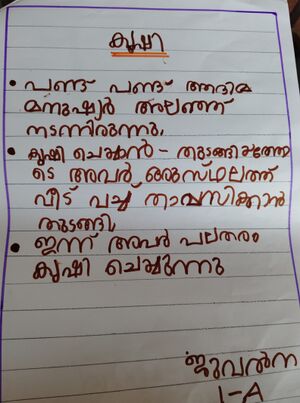 കൃഷി
• പണ്ട് പണ്ട് ആദിമ
മനുഷ്യർ അലഞ്ഞ്
നടന്നിരുന്നു.
• കൃഷി ചെയ്യാൻ - തുടങ്ങിയതോ
ടെ അവർ ഒരുസ്ഥലത്ത്
വീട് വച്ച് താമസിക്കാൻ
തുടങ്ങി.
• ഇന്ന് അവർ പലതരം
കൃഷി ചെയ്യുന്നു
ജുവൽന
1-A